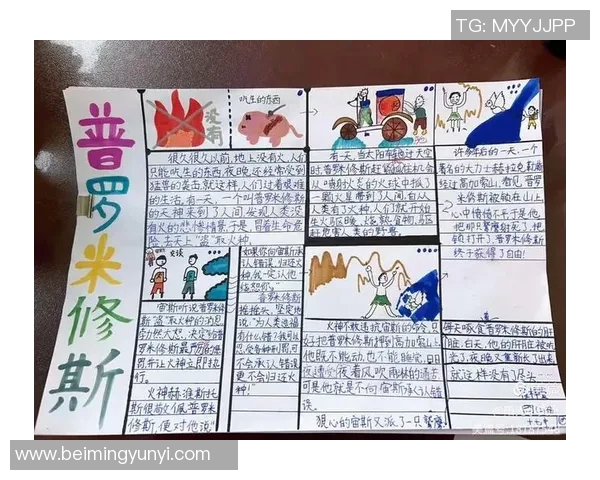 TG: MYYJJPP
普罗米修斯
没有
吃生的东西
很久很久以前,地上没有火,人们
只能吃生的东西,夜晚还经常受到
猛兽的袭击,就这样,人们过着艰难
的生活。有一天,一个叫普罗米修斯
的天神来到了人间,发现人类没
有火的悲惨情景,于是,冒着生命危
险,去天上"盗"取火种。
有一天,当太阳车驰过天空
时,普罗米修斯
从
火焰的火球中抓了
一颗火星带到了人间。自从
人类有了火种,人们就开始
生火取暖、烧熟食物、驱
赶危害人类的野兽。
许多年后的一天,一个
著名的大力士赫拉克勒斯
经过高加索山,看见普罗
米修斯被锁在山上,
心中愤愤不平,于是他
他即只鹫鹰射死了,把
锁打开了,普罗米修斯
终于获得了自由!
交谈
宙斯听说普罗米
修斯"盗"取火种的消息,
勃然大怒,决定给
普罗米修斯最严厉的
罚,并让火神立即执
行。
火神赫淮斯托
斯很敬佩普罗米
修斯,便对他说:"
如果你向宙斯承
认错误,归还火
种,我一定让他
饶恕你。"
普罗米修斯
摇摇头,坚定地
说:"为人类造福
有什么错?我可以
忍受各种刑罚,可
不会承认错误,
更不会归还火
种!"
火神不敢违抗宙斯的命令,只
好把普罗米修斯押到高加索山上,
他既不能动,也不能睡觉,日日
夜夜遭受着风吹雨淋的痛苦,
可是他就是不向宙斯承认错
误。
狠心的宙斯又派了一只鹫鹰
每天啄食普罗米修斯的肝
脏。白天,他的肝脏被吃
光了,夜晚又重新长了出来,
就这样没有了尽头……
www.beimingyunyi.com